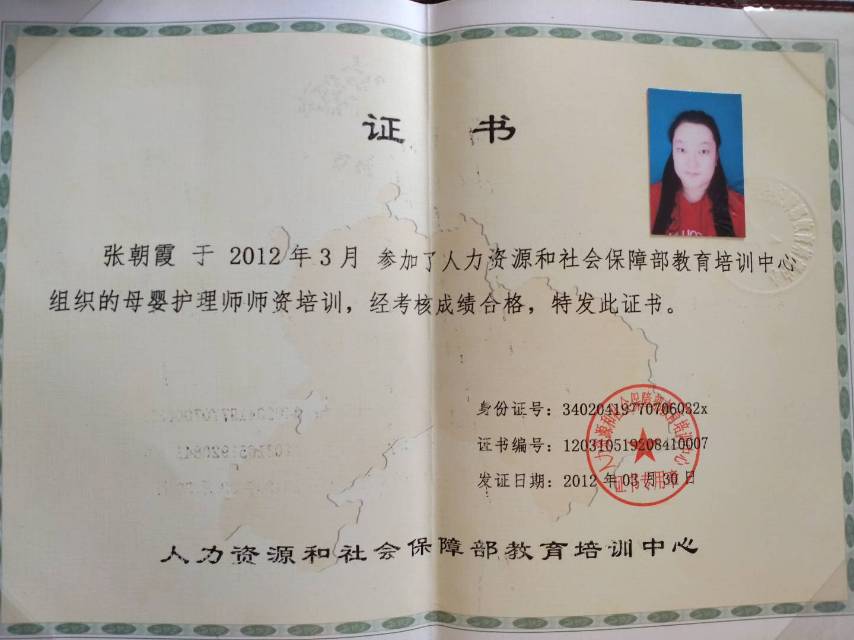 证书
张朝霞 于 2012年3月 参加了人力资源和社会保障部教育培训中心
组织的母婴护理师师资培训，经考核成绩合格，特发此证书。
身份证号：34020419770706032x
证书编号：120310519208410007
发证日期：2012年03月30日
人力资源和社会保障部教育培训中心
证书专用章
人力资源和社会保障部教育培训中心